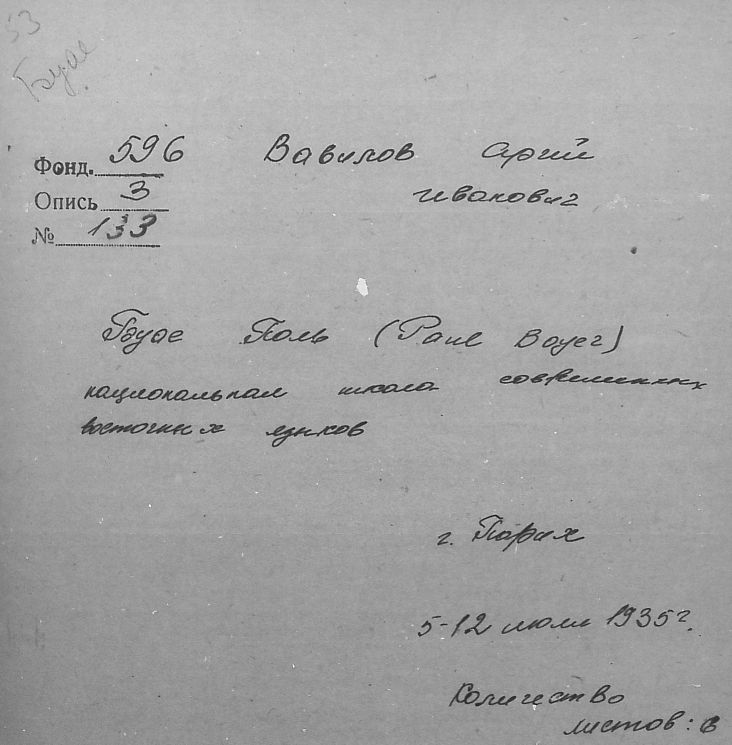 53
Буае
Фонд. 596
Опись 3
№ 133
Вавилов Сргий
Иванович
Буае Поль (Paul Boyer)
национальная школа современных
восточных языков
г. Париж
5-12 июля 1935г.
Количество
листов: 8